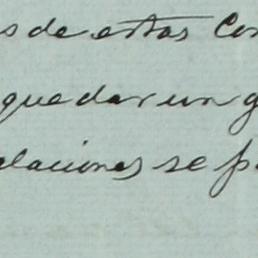 s de estas Con
quedar un g
elaciones se p